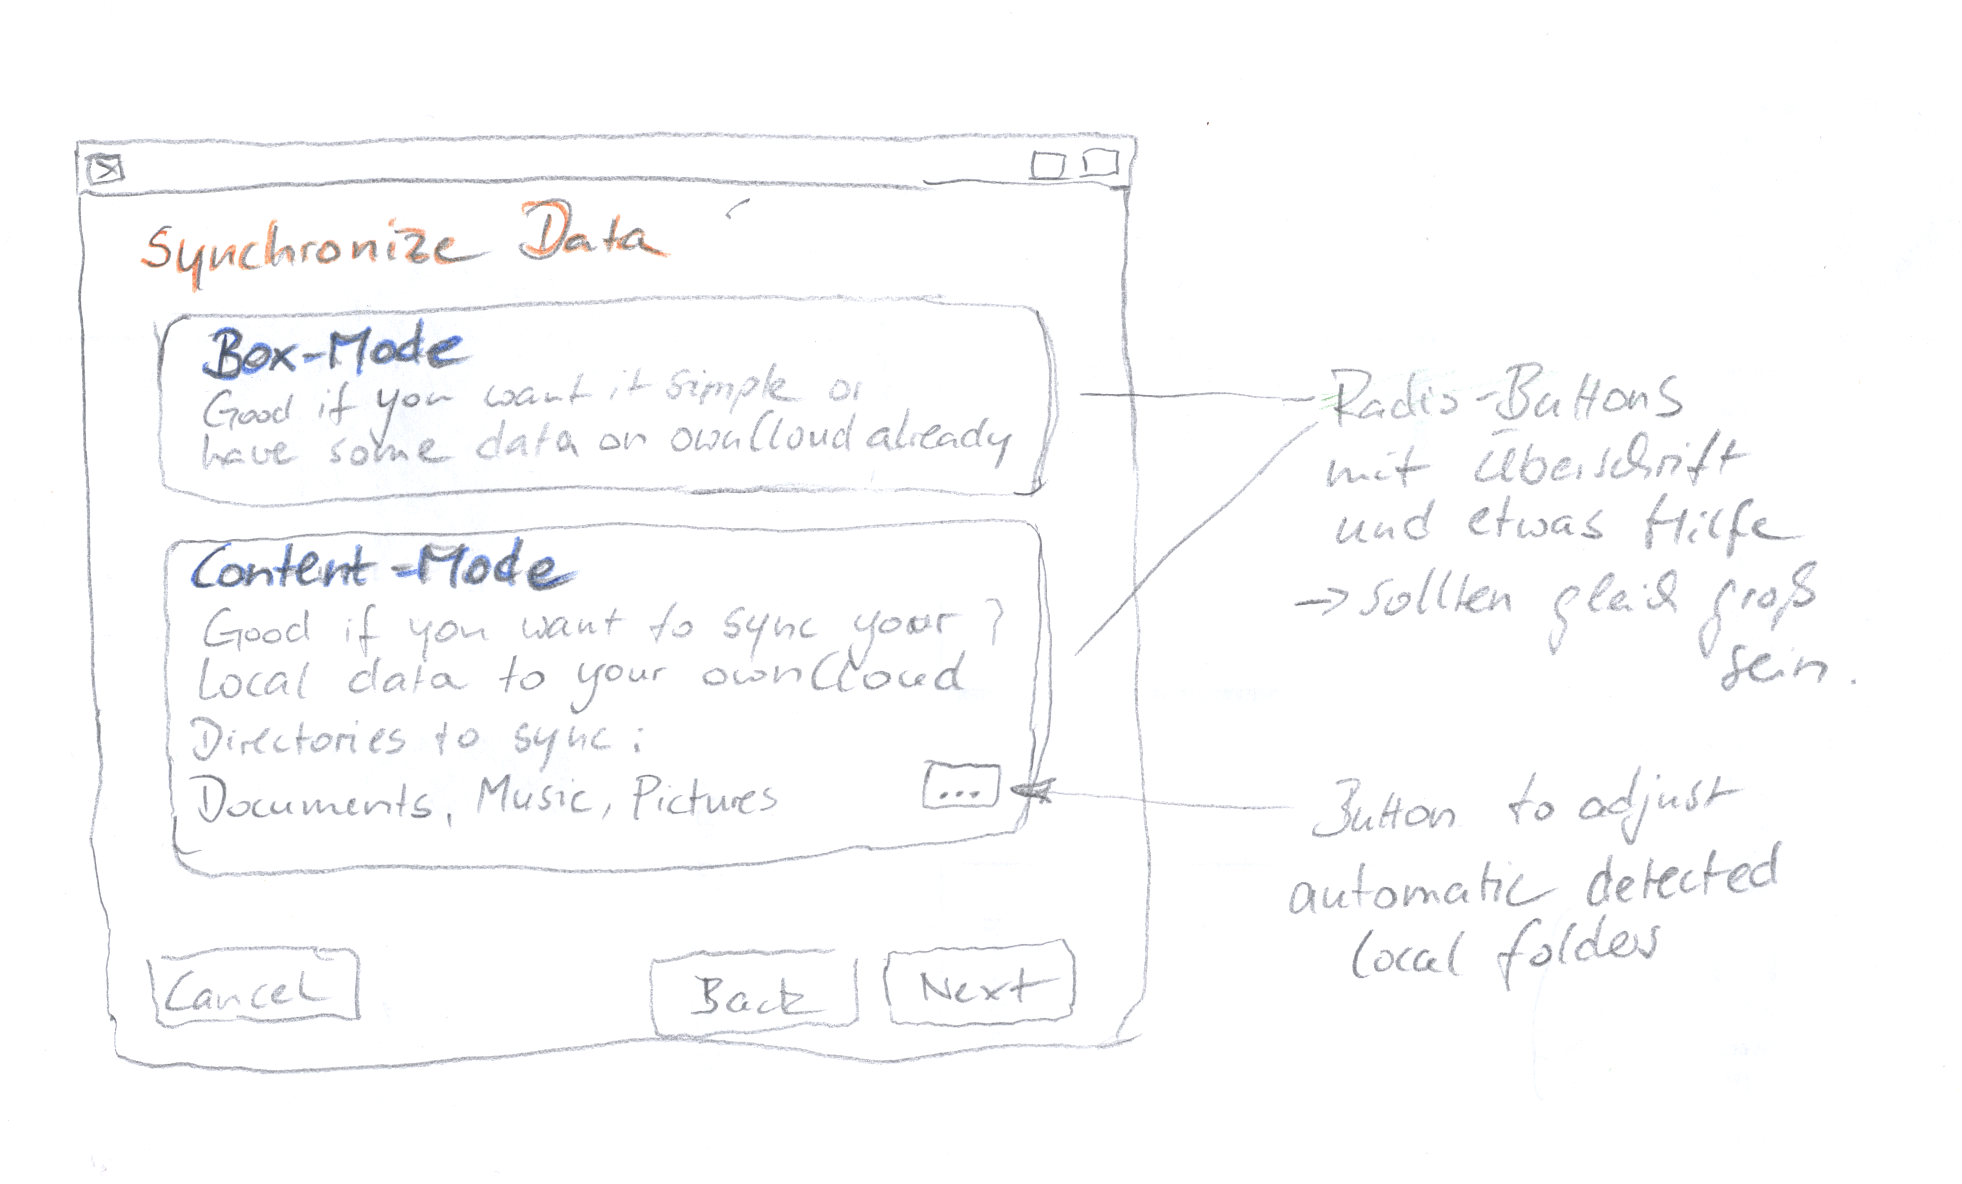 Synchronize Data
Box-Mode
Good if you want it simple or
have some data on ownCloud already
Content-Mode
Good if you want to sync your
Local data to your ownCloud
Directories to sync:
Documents, Music, Pictures
...
Cancel
Back
Next
Radio-Buttons
mit Überschrift
und etwas Hilfe
→ sollten gleich groß
sein.
Button to adjust
automatic detected
local folders